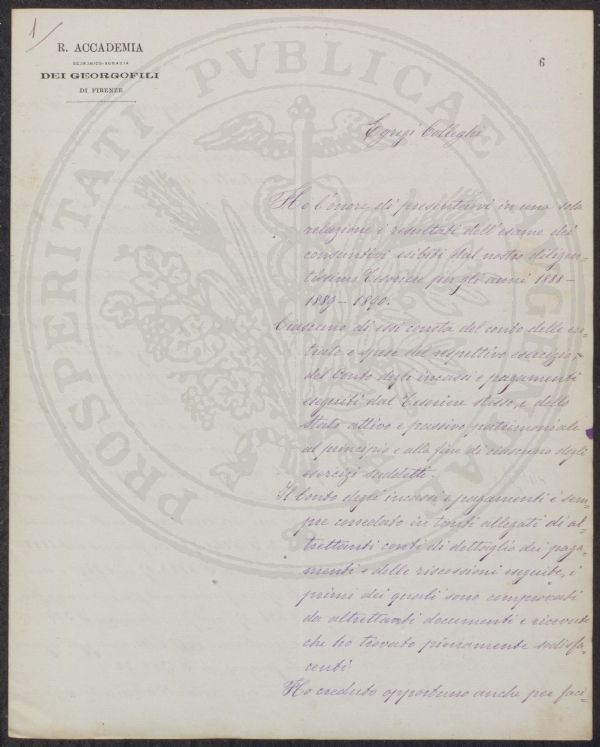 1/
R. ACCADEMIA
ECONOMICO-AGRARIA
DEI GEORGOFILI
DI FIRENZE
6
PROSPERITATI PVBLICAE
Egregi Colleghi
Ho l'onore di presentarvi in una sola
relazione i resultati dell'esame dei
consuntivi esibiti dal nostro diligen-
tissimo Tesoriere per gli anni 1888 -
1889 - 1890.
Ciascuno di essi consta del conto delle en-
trate e spese del respettivo esercizio,
del Conto degli incassi e pagamenti
eseguiti dal Tesoriere stesso, e dello
Stato attivo e passivo patrimoniale
al principio e alla fine di ciascuno degli
esercizi suddetti.
Il Conto degli incassi e pagamenti è sem-
pre corredato in tanti allegati di al-
trettanti conti di dettaglio dei paga-
menti e delle riscossioni eseguite, i
primi dei quali sono comprovati
da altrettanti documenti e ricevute
che ho trovato pienamente sodisfa-
centi
Ho creduto opportuno anche per faci-